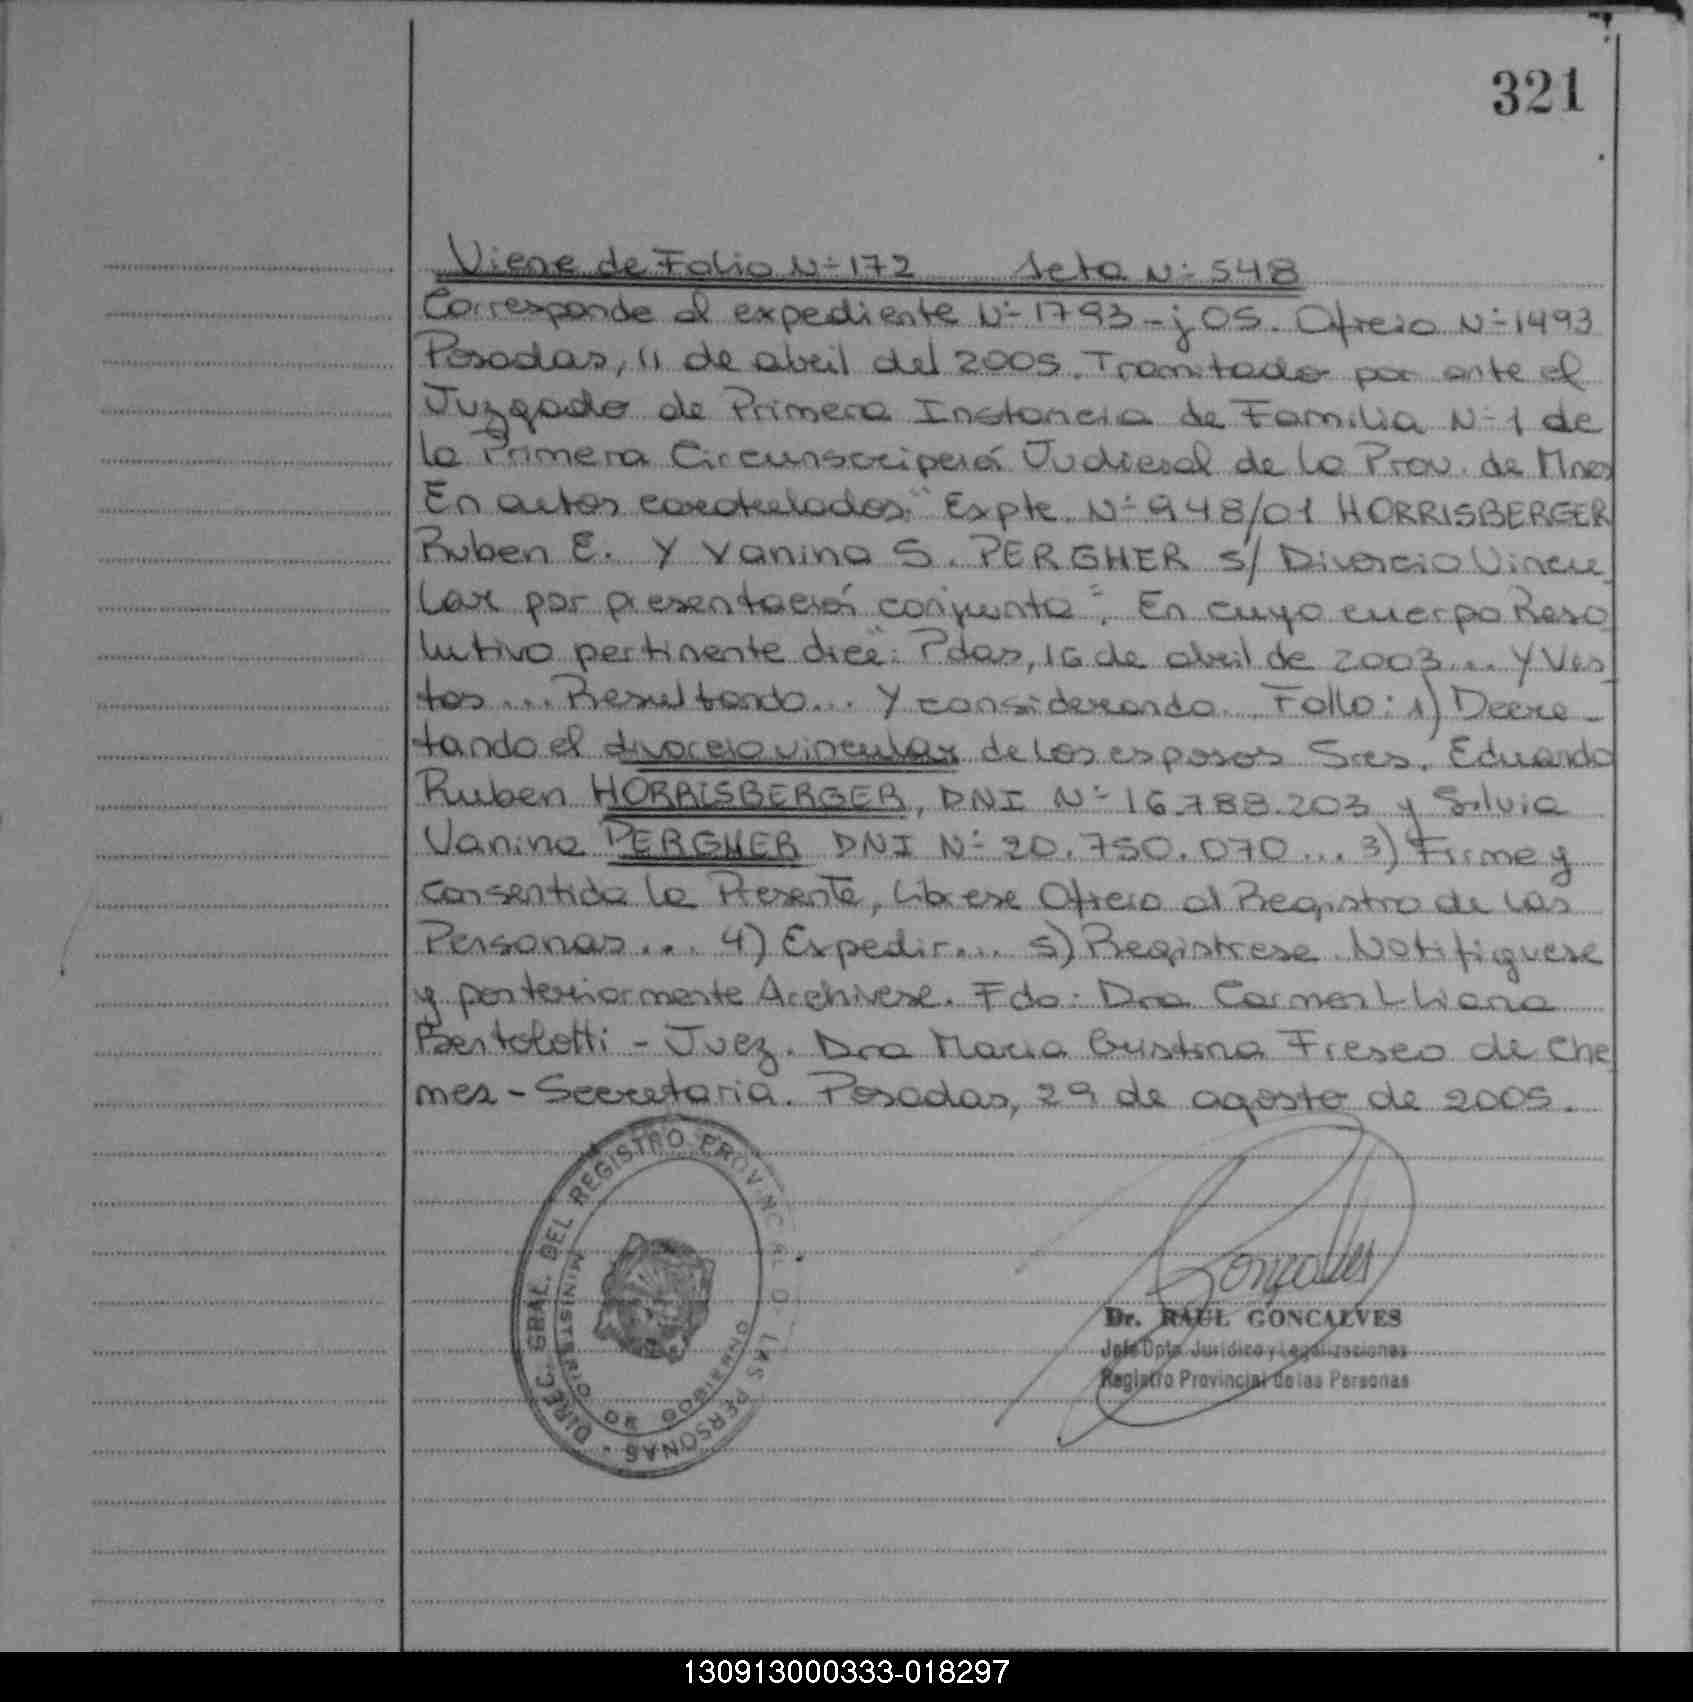 321
Viene de Folio Nº 172 Acta Nº 548
Corresponde al expediente Nº 1793-j 05. Oficio Nº 1493
Posadas, 11 de abril del 2005. Tramitado por ante el
Juzgado de Primera Instancia de Familia Nº 1 de
la Primera Circunscripción Judicial de la Prov. de Mnes
En autos caratulados: "Expte Nº 948/01 HORRISBERGER
Ruben E. Y Vanina S. PERGHER S/ Divorcio Vincu
lar por presentación conjunta". En cuyo cuerpo Reso
lutivo pertinente dice": Pdas, 16 de abril de 2003... Y Vis
tos... Resultando... Y considerando... Fallo: 1) Decre-
tando el divorcio vincular de los esposos Sres. Eduardo
Ruben HORRISBERGER, DNI Nº 16.788.203 y Silvia
Vanina PERGHER DNI Nº 20.750.070... 3) Firme y
consentida la Presente, Librese Oficio al Registro de las
Personas... 4) Expedir... 5) Registrese. Notifiquese
y posteriormente Archivese. Fdo: Dra Carmen Liliana
Bertolotti - Juez. Dra Maria Cristina Fresco de Che
mes - Secretaria. Posadas, 29 de agosto de 2005.
DIREC. GRAL. DEL REGISTRO PROVINCIAL DE LAS PERSONAS
MINISTERIO DE GOBIERNO
Goncalves
Dr. RAUL GONCALVES
Jefe Dpto. Jurídico y Legalizaciones
Registro Provincial de las Personas
130913000333-018297